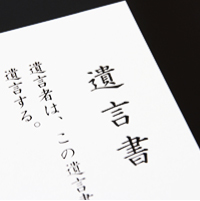 遺言書
遺言者は、この遺言書
遺言する。